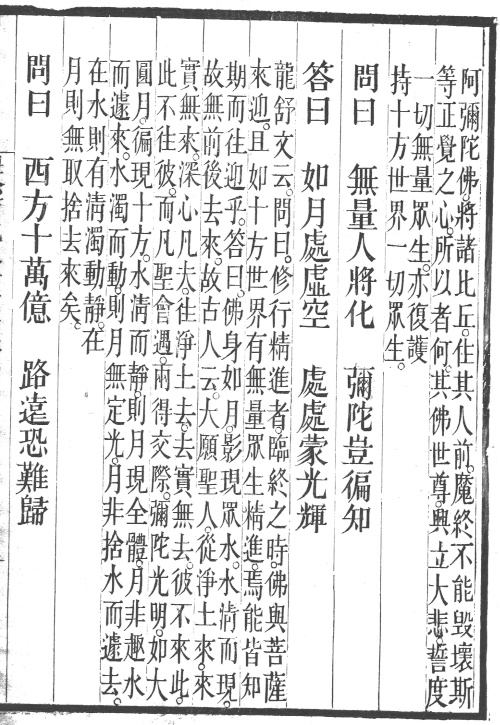 阿彌陀佛。將諸比丘。住其人前。魔終不能毀壞斯
等正覺之心。所以者何。其佛世尊。興立大悲。誓度
一切無量眾生。亦復護
持十方世界一切眾生。
問曰　無量人將化　彌陀豈徧知
答曰　如月處虛空　處處蒙光輝
龍舒文云。問曰。修行精進者。臨終之時。佛與菩薩
來迎。且如十方世界有無量眾生精進。焉能皆知
期而往迎乎。答曰。佛身如月。影現眾水。水清而現。
故無前後去來。故古人云。大願聖人。從淨土來。來
實無來。深心凡夫。往淨土去。去實無去。彼不來此。
此不往彼。而凡聖會遇。兩得交際。彌陀光明。如大
圓月。徧現十方。水清而靜。則月現全體。月非趣水
而遽來。水濁而動。則月無定光。月非捨水而遽去。
在水則有清濁動靜。在
月則無取捨去來矣。
問曰　西方十萬億　路遠恐難歸